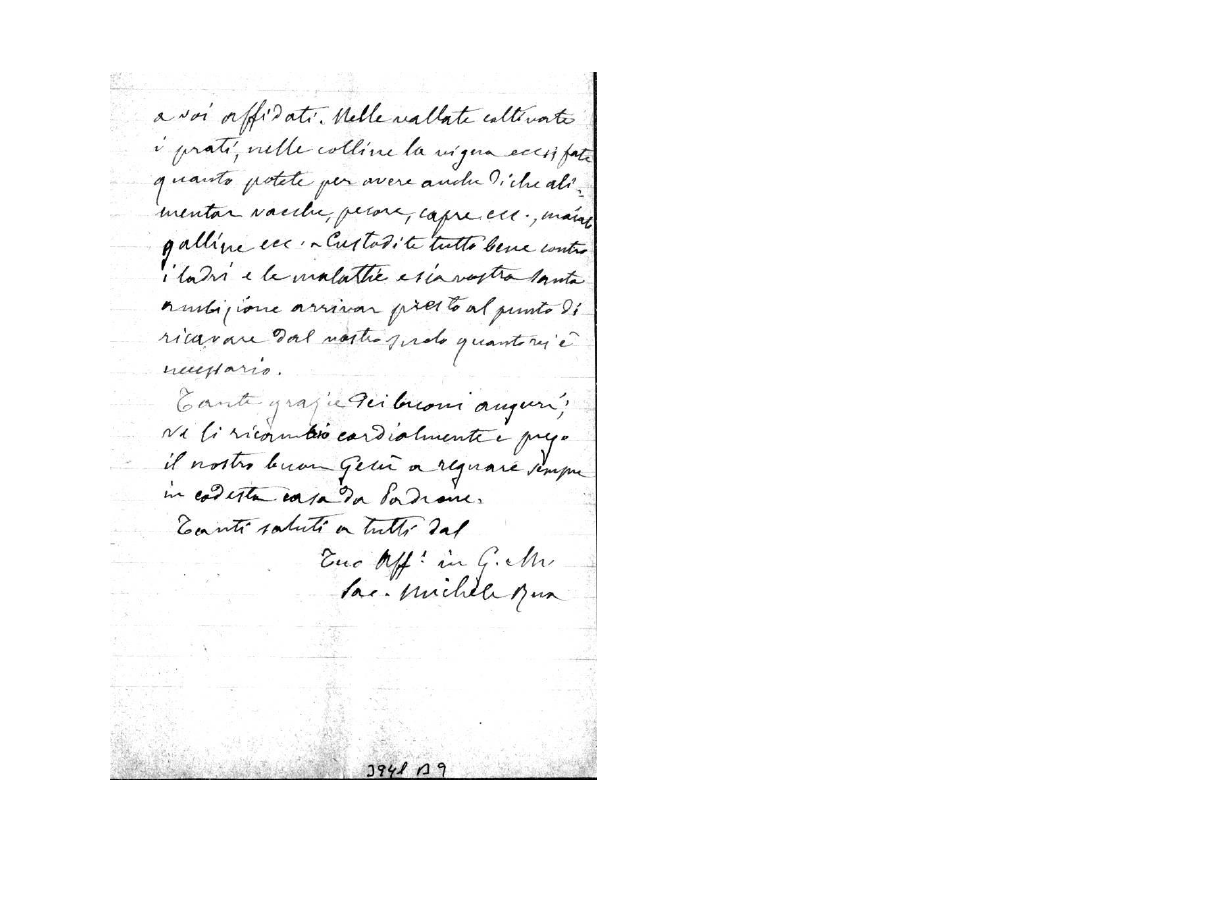 a voi affidati. Nelle vallate coltivate
i prati, nelle colline la vigna ecc. si fate
quanto potete per avere anche di che ali-
mentar vacche, pecore, capre ecc., maiali
galline ecc. Custodite tutto bene contro
i ladri e le malattie e sia vostra santa
ambizione arrivar presto al punto di
ricavare dal vostro suolo quanto vi è
necessario.
Tante grazie dei buoni auguri;
ve li ricambio cordialmente e prego
il nostro buon Gesù a regnare sempre
in codesta casa da Padrone.
Tanti saluti a tutti dal
Tuo Aff. in G. e M.
Sac. Michele Rua
3941 B 9